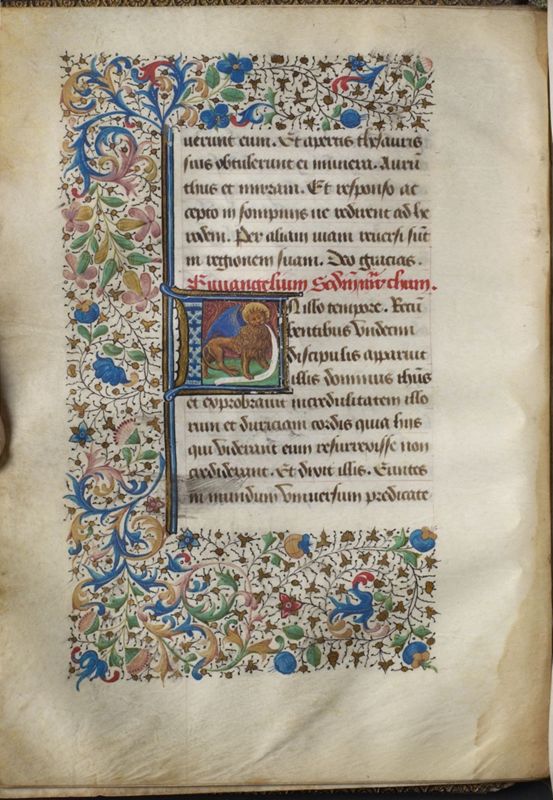 uerunt eum. Et apertis thesauris
suis obtulerunt ei munera. Aurū
thus et mirram. Et responso ac
cepto in sompnis ne redirent ad he
rodem. Per aliam uiam reuersi sūt
in regionem suam. Deo gracias.
Euuangelium Scdm̄ marchum.
In illo tempore. Recū
bentibus vndecim
discipulis apparuit
illis dominus ihūs
et exprobrauit incredulitatem illo
rum et duriciam cordis quia hijs
qui viderant eum resurrexisse non
crediderant. Et dixit illis. Euntes
in mundum vniuersum predicate